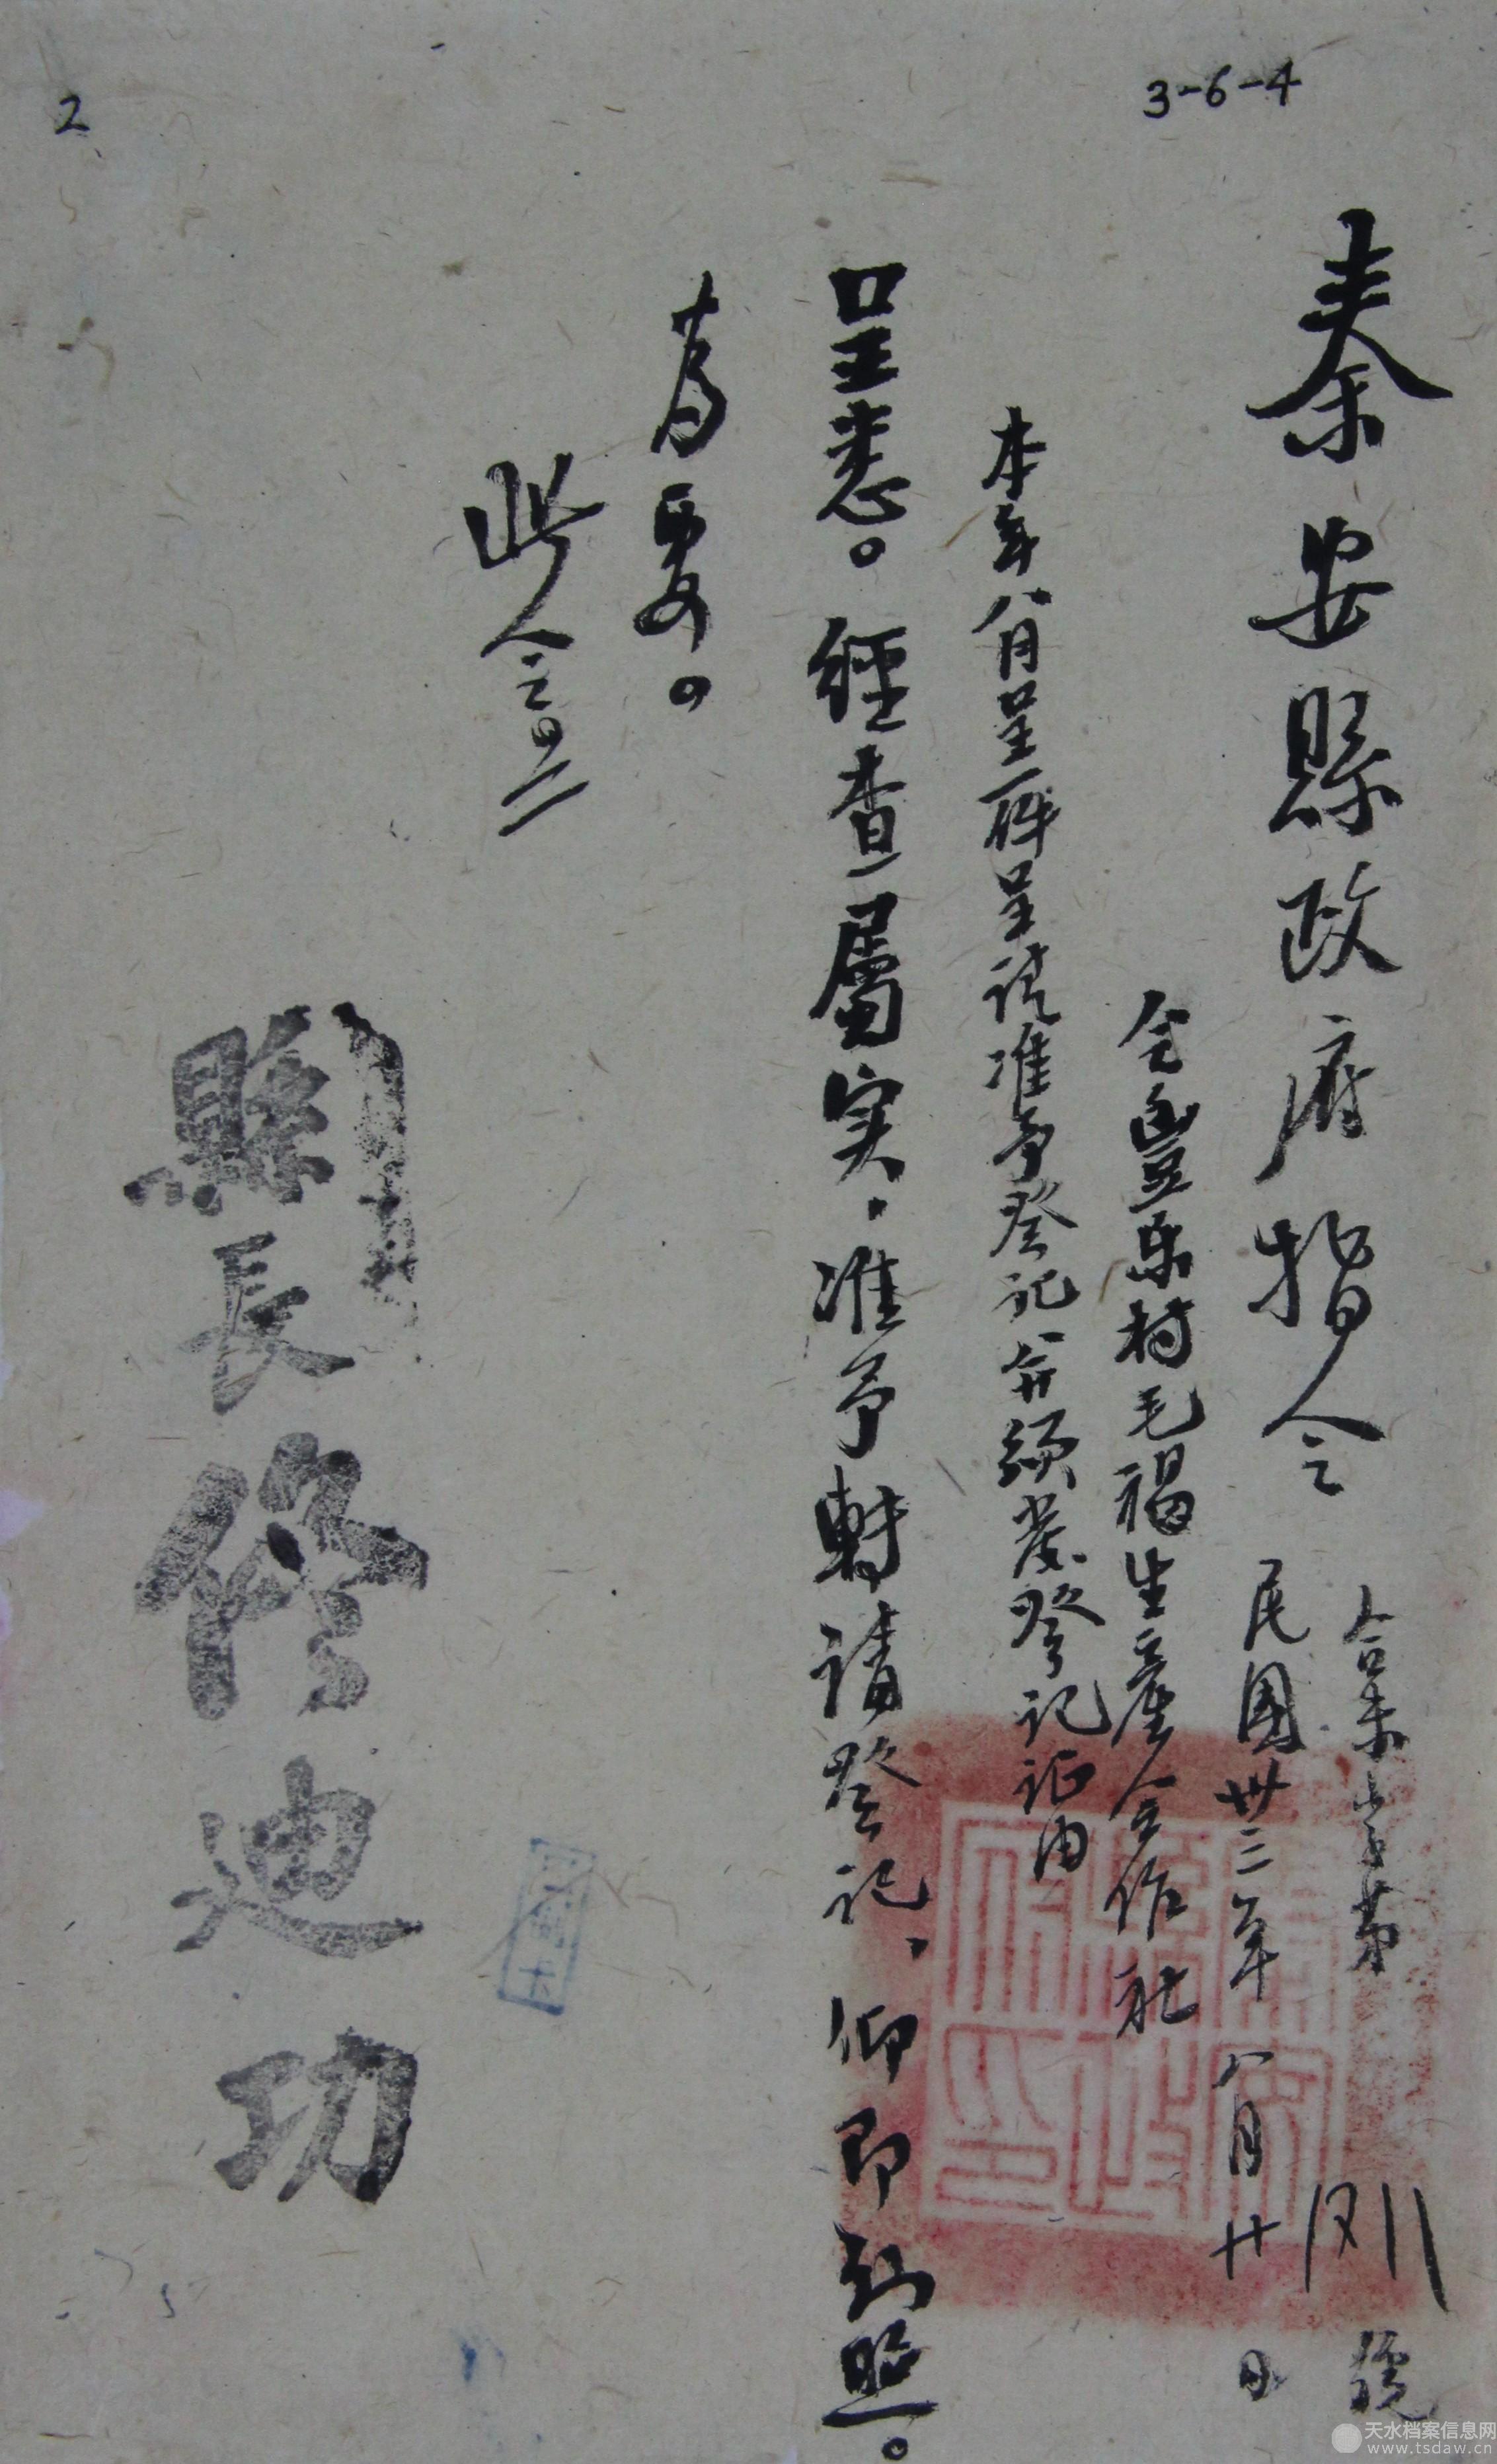 3-6-4
2
秦安縣政府指令
合未字第 號
民國卅三年八月廿 日
令豐乐村毛褐生產合作社
本年八月呈一件呈請准予登记并頒發登記证由
呈悉。經查屬实，准予轉請登记、仰即知照。
為要。
此令。
縣長修迪功
天水档案信息网
www.tsdaw.cn